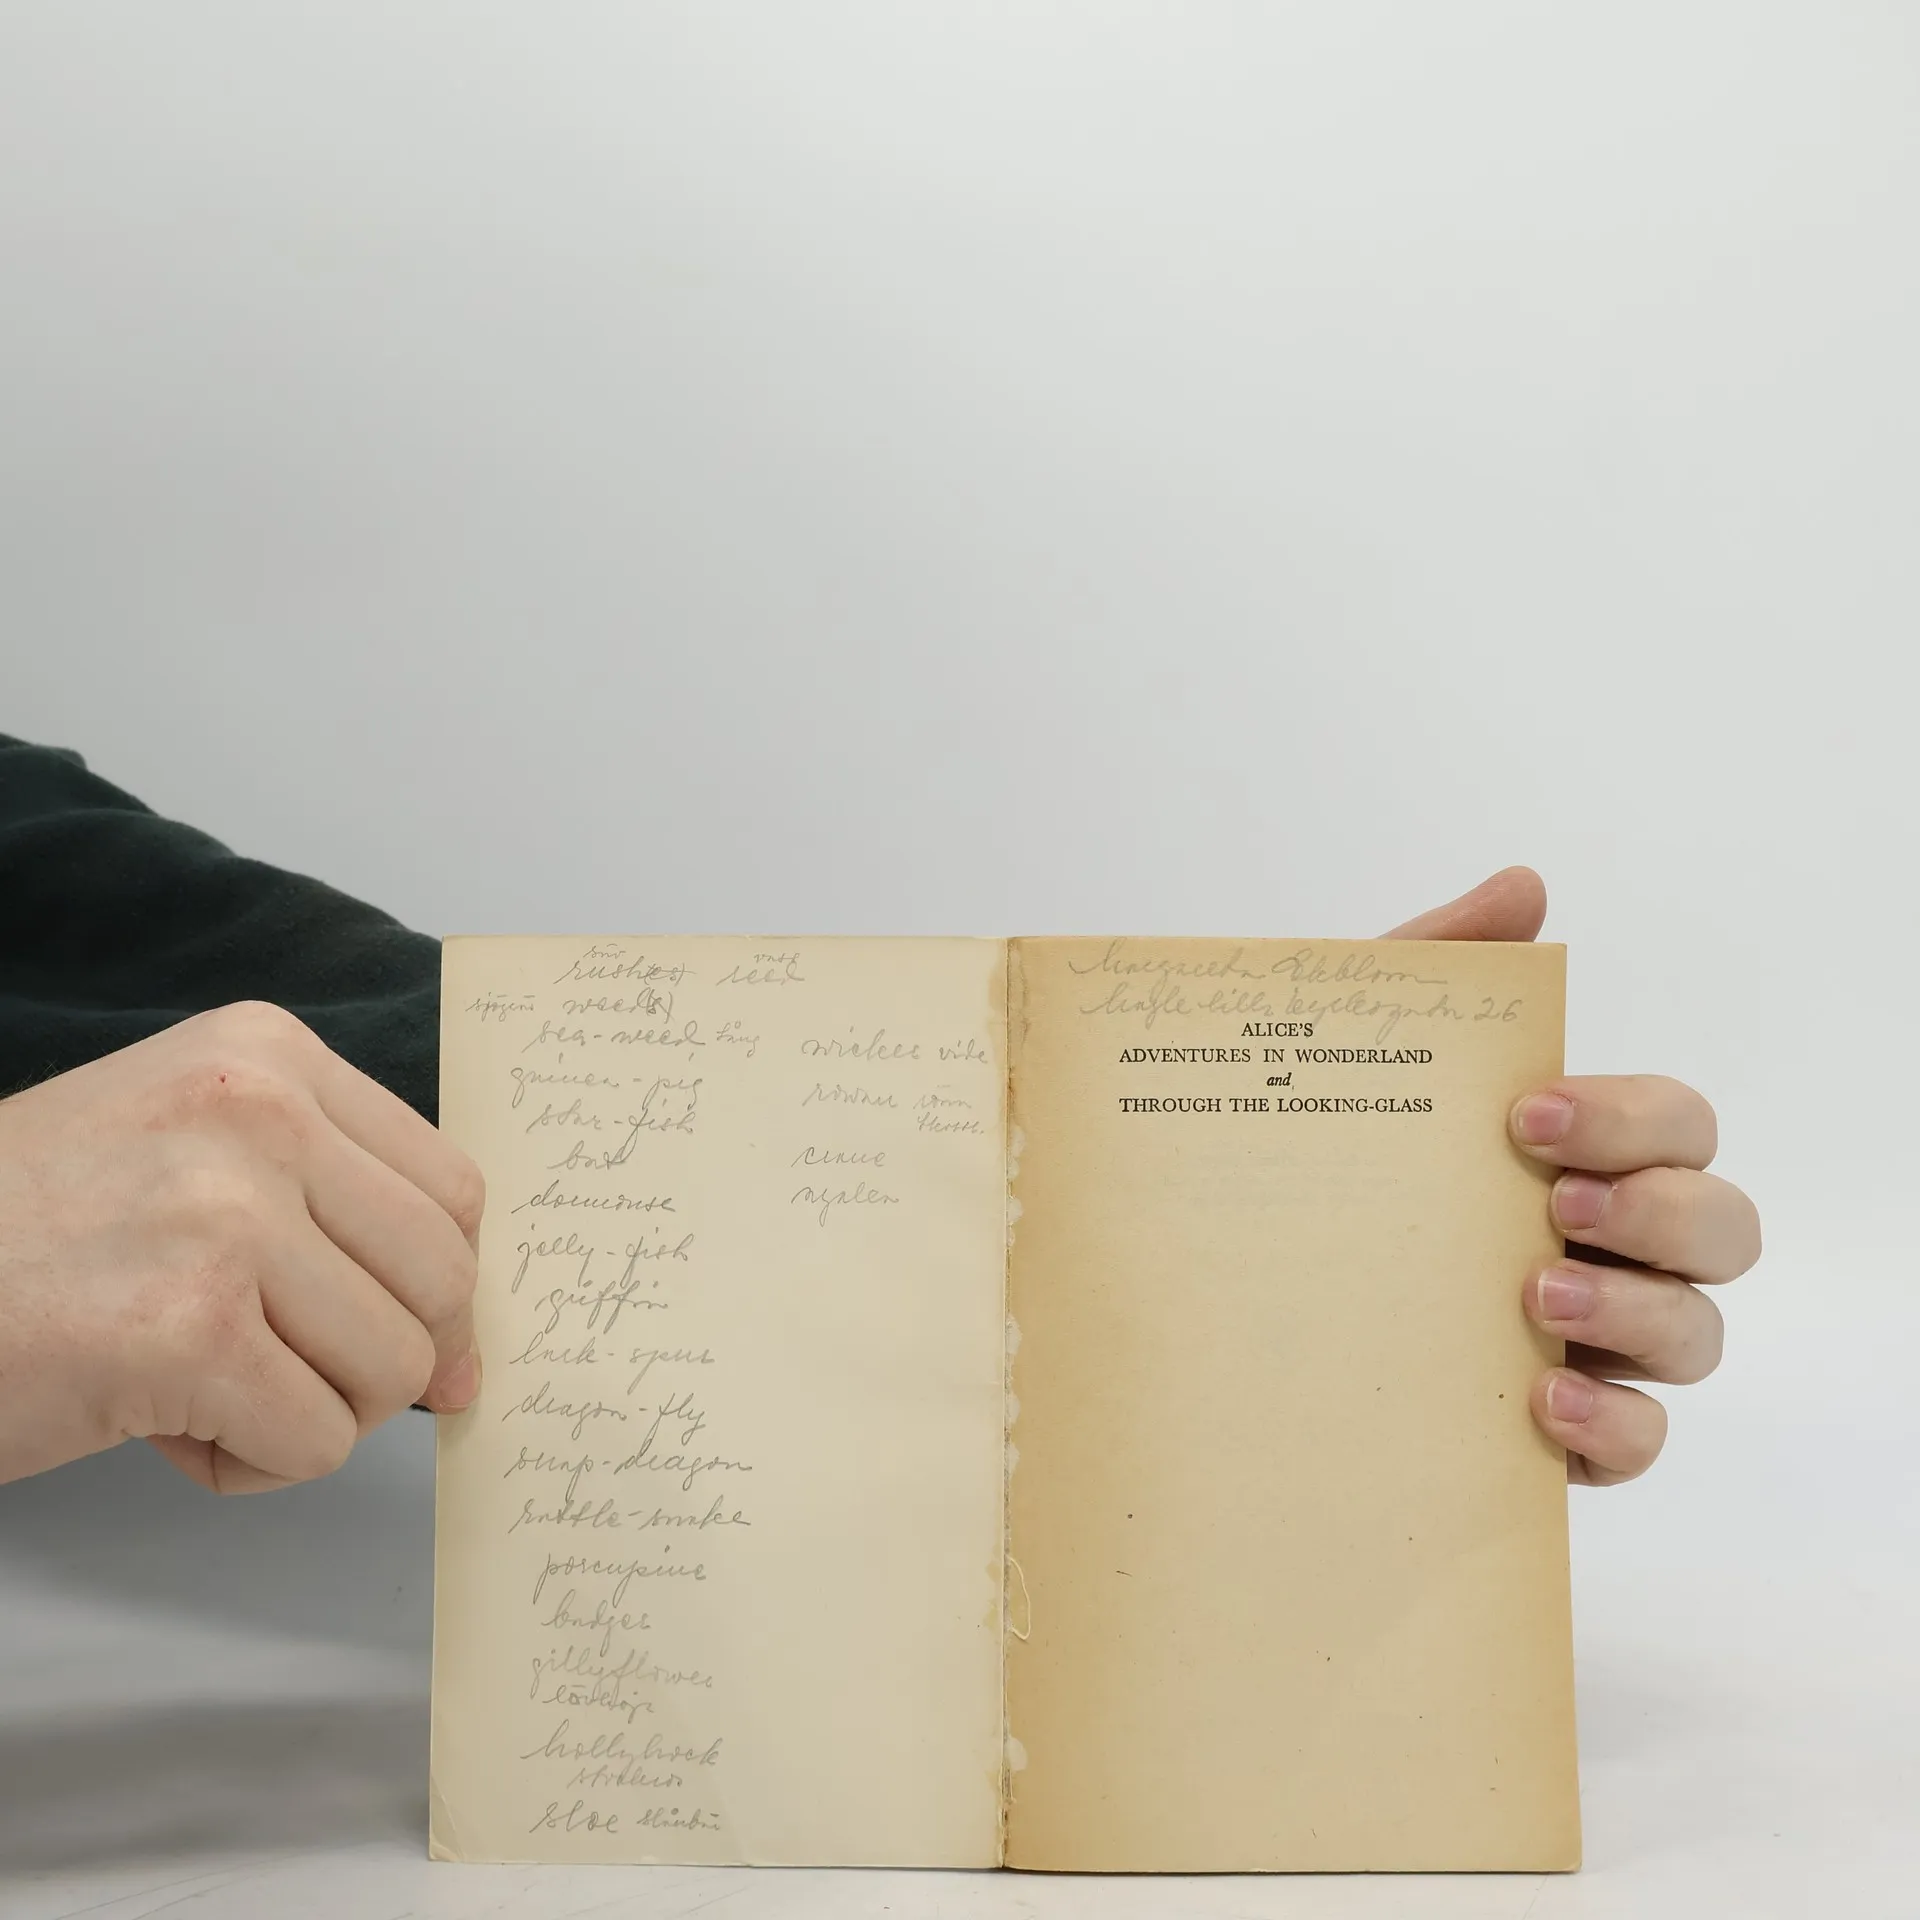 säv vass
rush(es) reed
weed(s)
sea-weed tång
guinea-pig
star-fish
bat
dormouse
jelly-fish
griffin
lark-spur
dragon-fly
snap-dragon
rattle-snake
porcupine
badger
gillyflower
lövkoja
hollyhock
stockros
sloe slånbär
wicker vide
rowan rönn
azalea
Margareta Ekblom
26
ALICE'S
ADVENTURES IN WONDERLAND
and
THROUGH THE LOOKING-GLASS